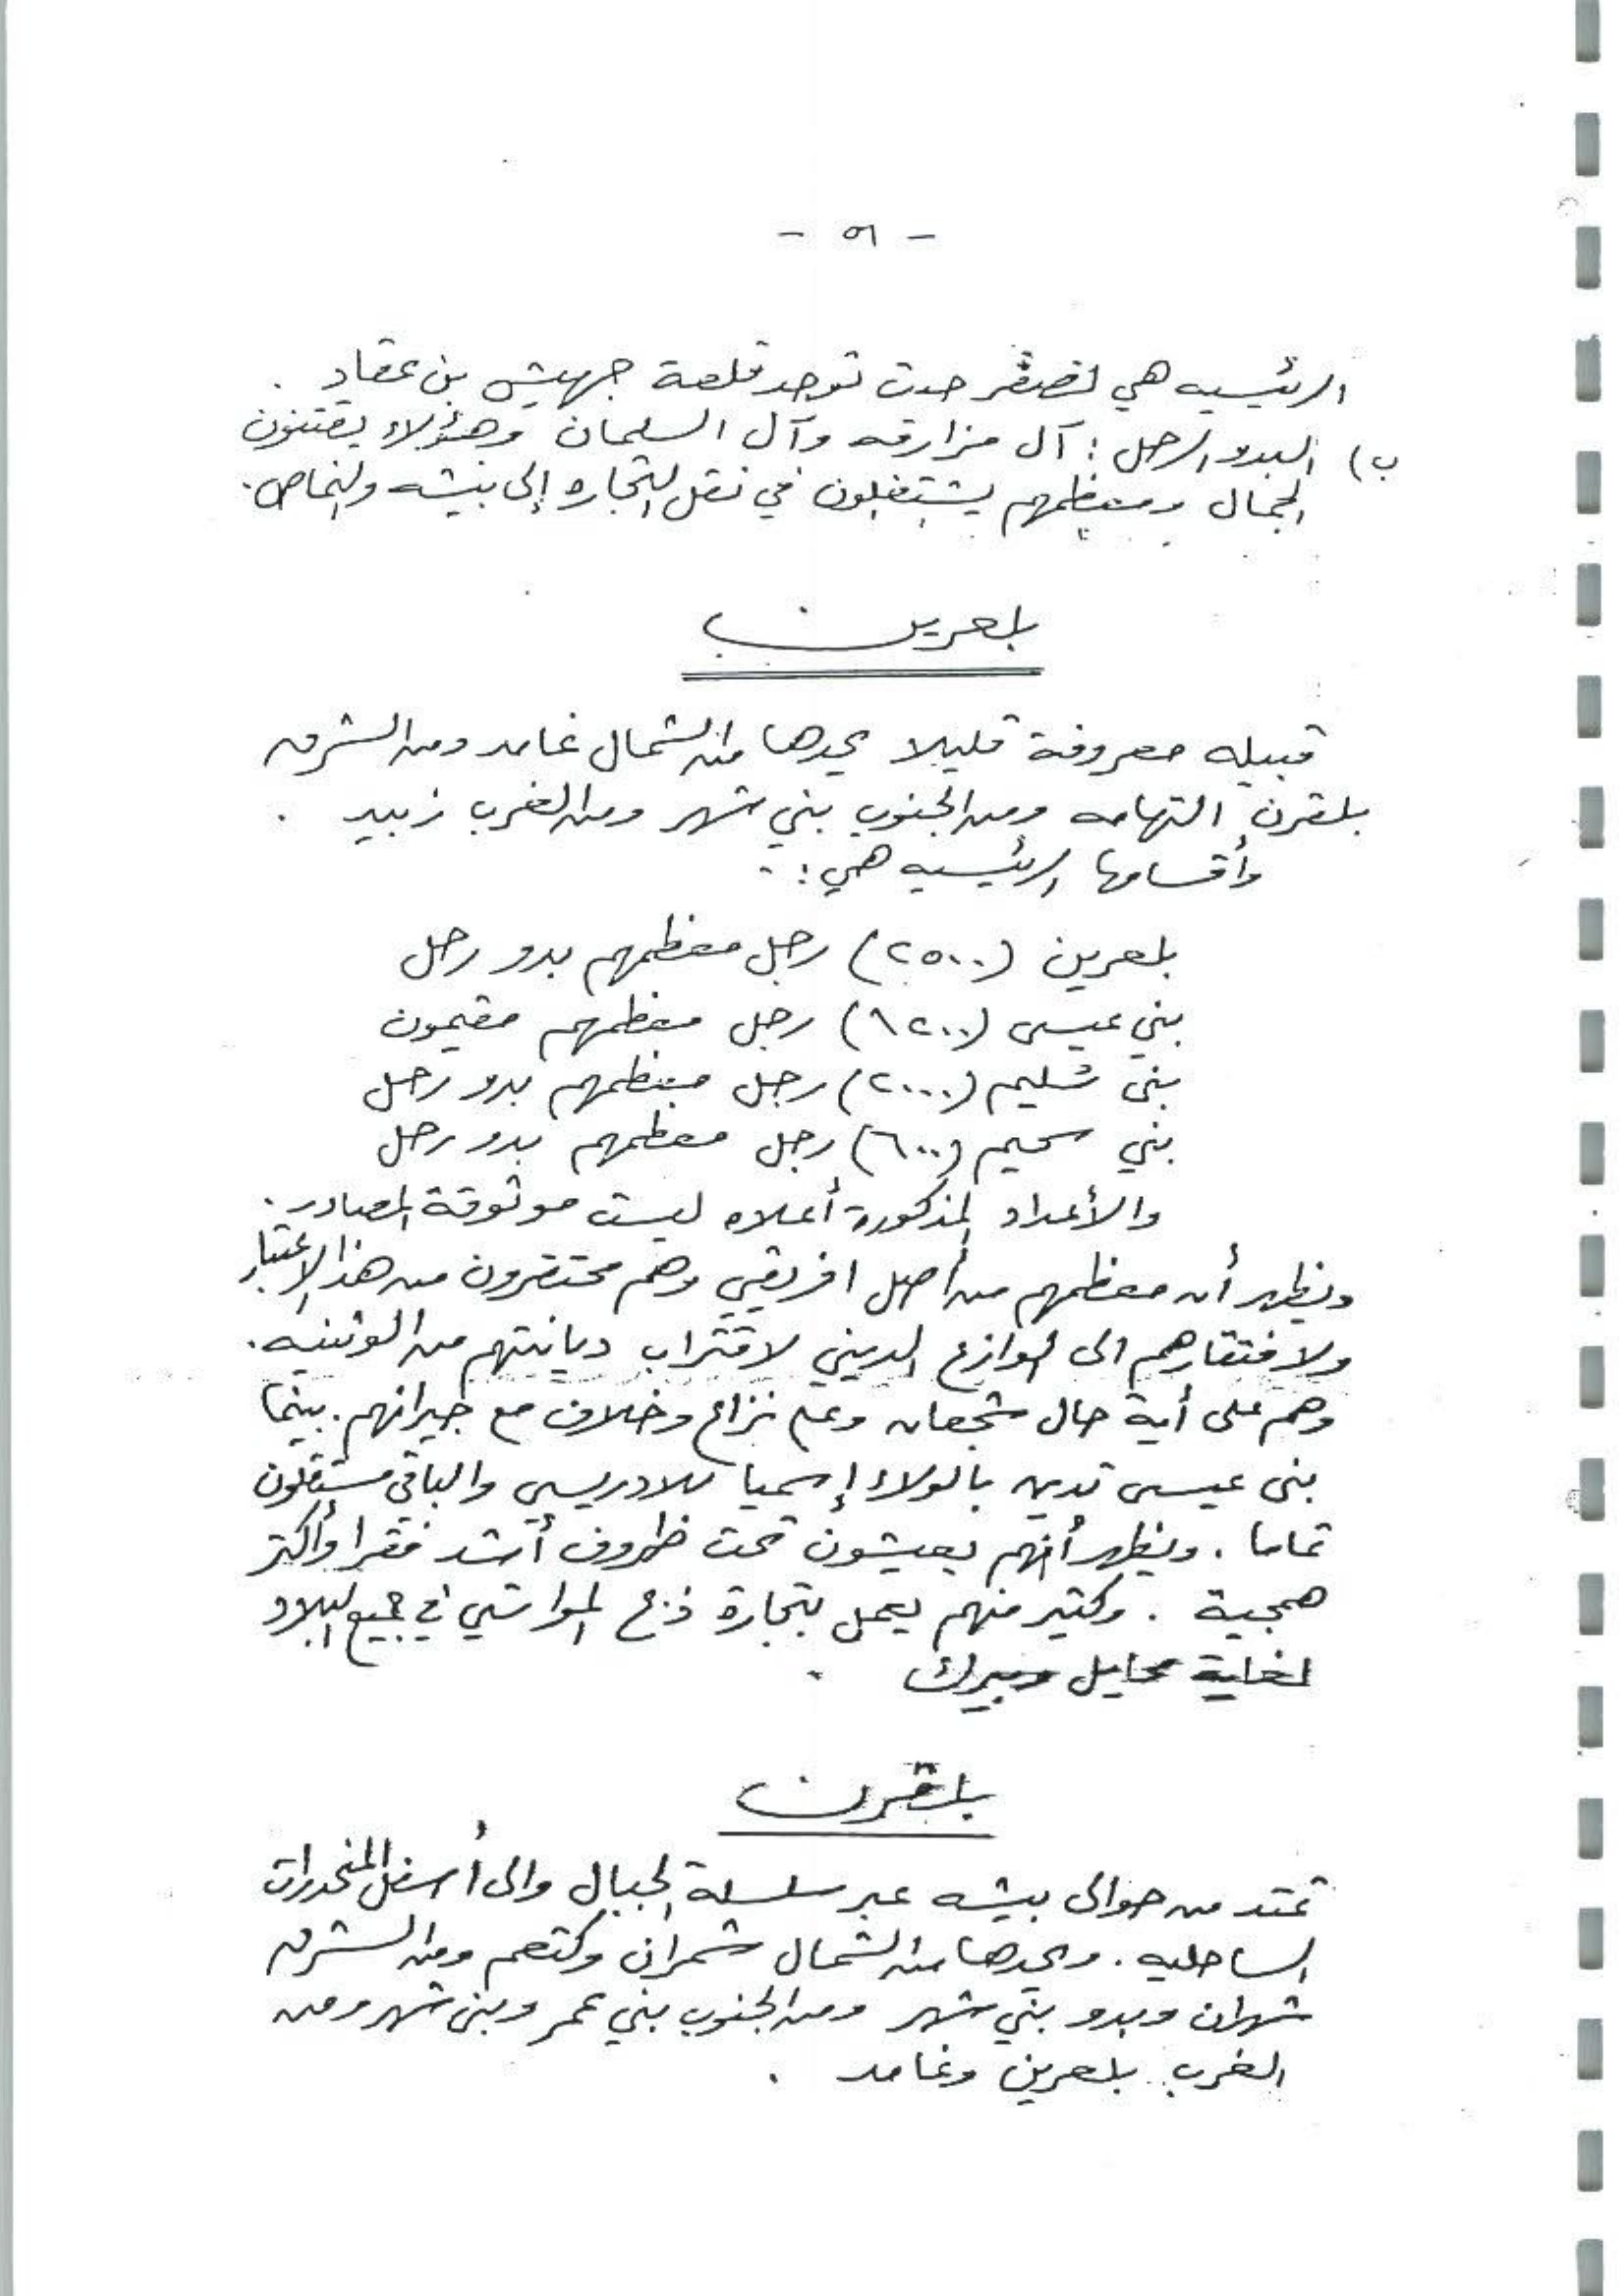 - ٥١ -
الرئيسيه هي لصقر حيث توجد قلعة جهيش بن عقاد .
ب) البدو الرحل : آل مزارقه وآل السلمان وهؤلاء يقتنون
الجمال ومعظمهم يشتغلون في نقل التجاره إلى بيشه والنماص.
بلعرين
قبيله معروفة قليلا يحدها من الشمال غامد ومن الشرق
بلقرن التهامه ومن الجنوب بني شهر ومن الغرب زبيد .
وأقسامها الرئيسيه هي :-
بلعرين (٢٥٠٠) رجل معظمهم بدو رحل
بني عيسى (١٢٠٠) رجل معظمهم مقيمون
بني سليم (٢٠٠٠) رجل معظمهم بدو رحل
بني سحيم (٦٠٠) رجل معظمهم بدو رحل
والأعداد المذكورة أعلاه ليست موثوقة المصادر .
ويظهر أن معظمهم من أصل افريقي وهم محتقرون من هذا الاعتبار
ولافتقارهم الى الوازع الديني لاقتراب ديانتهم من الوثنيه .
وهم على أية حال شجعان وعلى نزاع وخلاف مع جيرانهم . بينما
بني عيسى تدين بالولاء إسميا للادريسي والباقي مستقلون
تماما . ويظهر أنهم يعيشون تحت ظروف أشد فقرا وأكثر
همجية . وكثير منهم يعمل بتجارة ذبح المواشي في جميع البلاد
لغاية محايل وبرك .
بلقرن
تمتد من حوالى بيشه عبر سلسلة الجبال والى أسفل المنحدرات
الساحليه . ويحدها من الشمال شمران وكثعم ومن الشرق
شهران وبدو بني شهر ومن الجنوب بني عمر وبني شهر ومن
الغرب بلعرين وغامد .